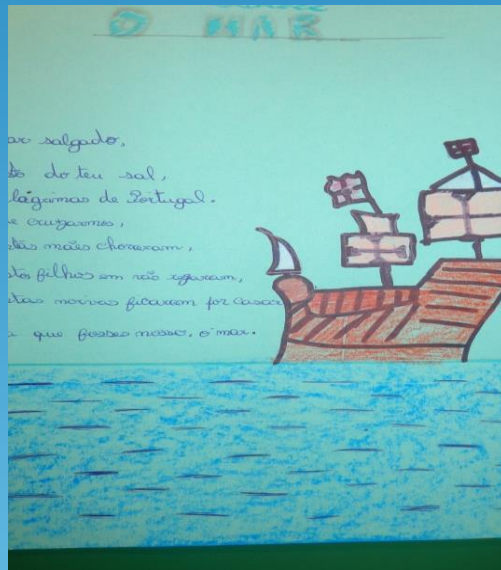 O MAR
ar salgado,
to do teu sal,
lágrimas de Portugal.
e cruzarmos,
tas mais choraram,
tos filhos em vão rezaram,
tas noivas ficaram for casar
a que fosses nosso, o mar.